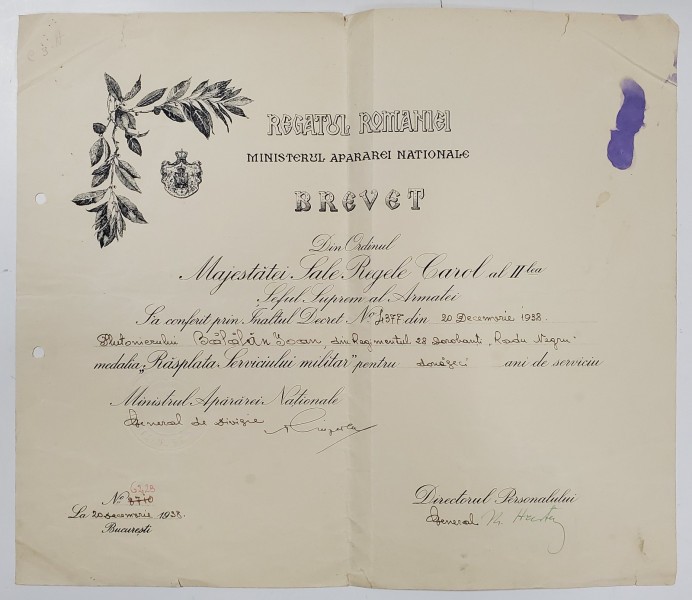 REGATUL ROMANIEI
MINISTERUL APARAREI NATIONALE
BREVET
Din Ordinul
Majestăței Sale Regele Carol al II lea
Șeful Suprem al Armatei
S'a conferit prin Inaltul Decret No 4377 din 20 Decemvrie 1938.
Plutonerului Bălălău Ioan, din Regimentul 28 Dorobanți „Radu Negru"
medalia „Răsplata Serviciului militar" pentru douăzeci ani de serviciu
Ministrul Apărărei Naționale
General de divizie
No 3710
La 20 Decemvrie 1938.
București
Directorul Personalului
General